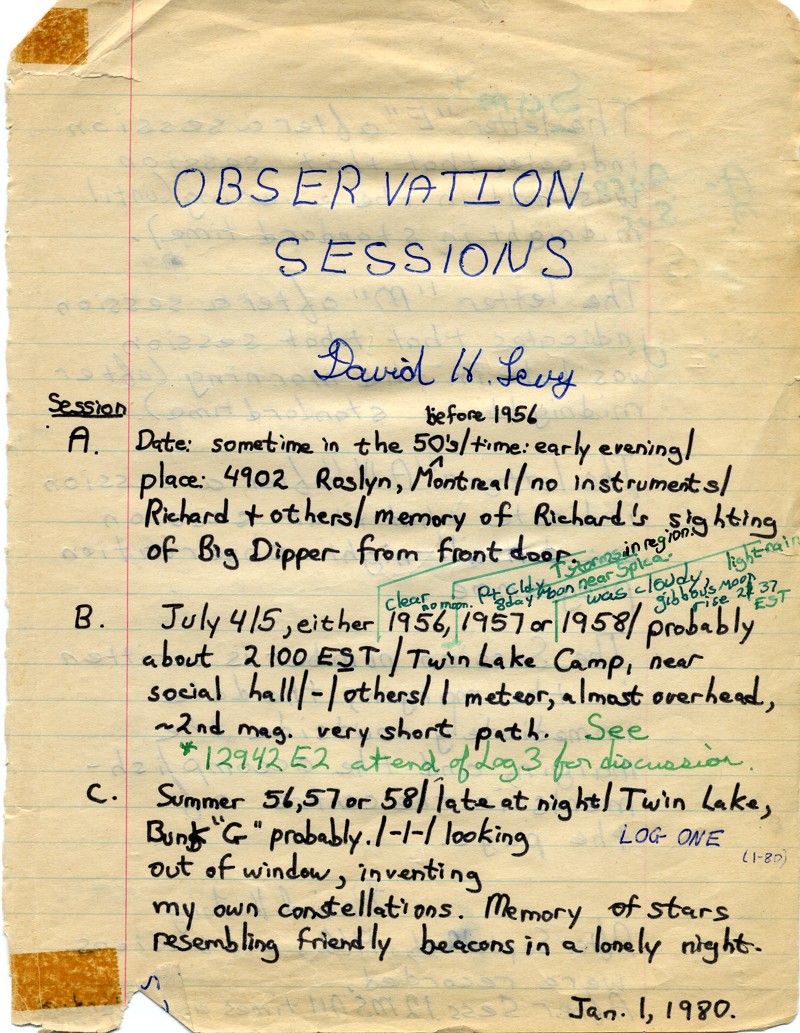 OBSERVATION
SESSIONS
David H. Levy
Session
before 1956
A. Date: sometime in the 50's/time: early evening/
place: 4902 Roslyn, Montreal/no instruments/
Richard + others/ memory of Richard's sighting
of Big Dipper from front door.
Tstorms in region.
clear no moon.
pt cldy 8day moon near Spica.
was cloudy, light rain
gibbous moon rise 2137 EST
B. July 4/5, either 1956, 1957 or 1958/ probably
about 2100 EST / Twin Lake Camp, near
social hall/-/others/ 1 meteor, almost overhead,
~2nd mag. very short path. See
*12942 E2 at end of Log 3 for discussion.
C. Summer 56, 57 or 58/ late at night/ Twin Lake,
Bunk "G" probably./-/-/ looking
LOG ONE
(1-80)
out of window, inventing
my own constellations. Memory of stars
resembling friendly beacons in a lonely night.
Jan. 1, 1980.